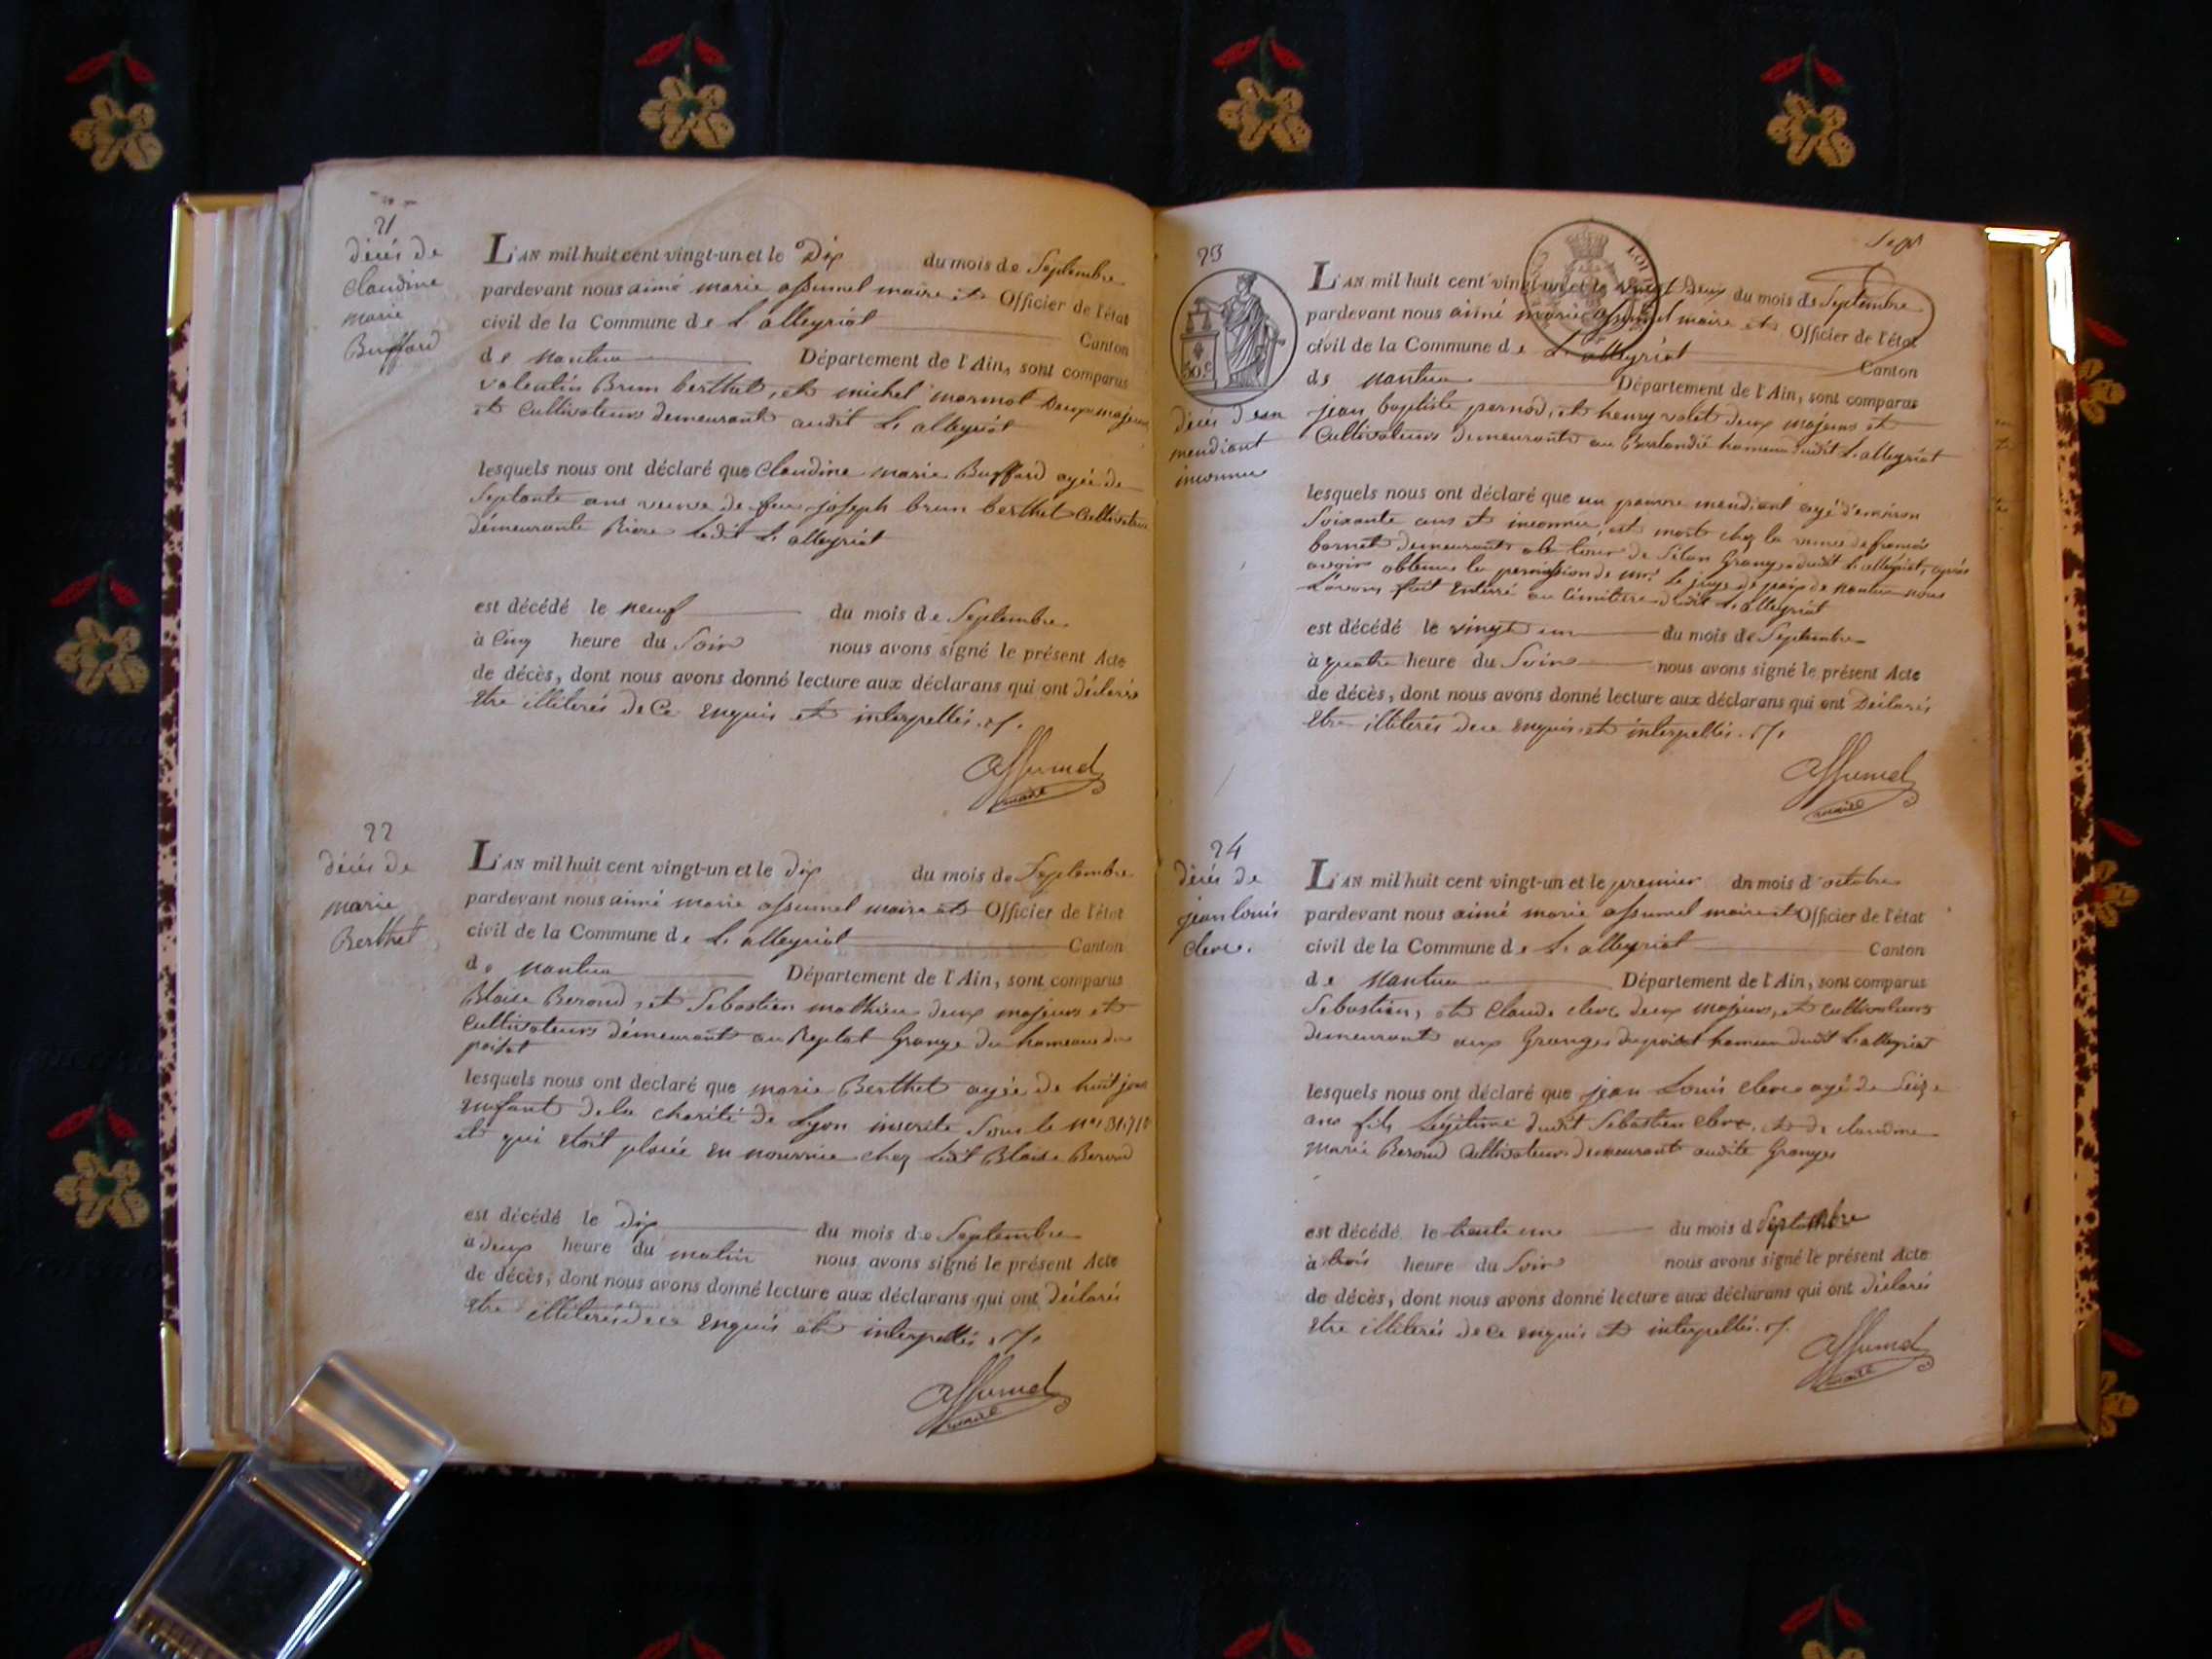 21
décés de
Claudine
marie
Buffard
L'AN mil huit cent vingt-un et le Dix du mois de Septembre
pardevant nous aimé marie assumel maire et Officier de l'état
civil de la Commune de L'alleyriat Canton
de nantua Département de l'Ain, sont comparus
valentin Brun berthet, et michel marmot Deux majeurs
et Cultivateurs demeurant audit L'alleyriat
lesquels nous ont déclaré que Claudine marie Buffard agée de
Septante ans veuve de feu joseph brun berthet Cultivateur
démeurante Riere ledit L'alleyriat
est décédé le neuf du mois de Septembre
à Cinq heure du Soir nous avons signé le présent Acte
de décès, dont nous avons donné lecture aux déclarans qui ont déclarés
Etre illiterés de Ce Enquis et interpellés
assumel
maire
22
décés de
marie
Berthet
L'AN mil huit cent vingt-un et le dix du mois de Septembre
pardevant nous aimé marie assumel maire et Officier de l'état
civil de la Commune de L'alleyriat Canton
de nantua Département de l'Ain, sont comparus
Blaise Beroud, et Sebastien mathieu deux majeurs et
Cultivateurs démeurant au Replat Grange du hameau du
poizat
lesquels nous ont declaré que marie Berthet agée de huit jour
Enfant de la charité de Lyon inscrite Sous le
et qui étoit placée en nourrice chez ledit Blaise Beroud
est décédé le dix du mois de Septembre
à deux heure du matin nous avons signé le présent Acte
de décès, dont nous avons donné lecture aux déclarans qui ont déclarés
Etre illiterés de ce Enquis et interpellés
assumel
maire
23
Sept
50.c
LOI
décés d'un
mendiant
inconnu
L'AN mil huit cent vingt-un et le vingt Deux du mois de Septembre
pardevant nous aimé marie assumel maire et Officier de l'état
civil de la Commune de L'alleyriat Canton
de nantua Département de l'Ain, sont comparus
jean baptiste pernod, et henry valet deux majeurs et
Cultivateurs demeurants au hameau dudit L'alleyriat
lesquels nous ont déclaré que un pauvre mendiant agé d'environ
Soixante ans et inconnu, est mort chez la veuve de françois
bornet demeurant a la Grange dudit L'alleyriat, après
avoir obtenu la permission de mr. Le juge de paix de nantua nous
L'avons fait Enterré au Cimitière dudit L'alleyriat
est décédé le vingt un du mois de Septembre
à quatre heure du Soir nous avons signé le présent Acte
de décès, dont nous avons donné lecture aux déclarans qui ont Déclarés
Etre illiterés de ce Enquis et interpellés
assumel
maire
24
décés de
jean louis
clerc.
L'AN mil huit cent vingt-un et le premier du mois d'octobre
pardevant nous aimé marie assumel maire et Officier de l'état
civil de la Commune de L'alleyriat Canton
de Nantua Département de l'Ain, sont comparus
Sebastien, et Claude clerc deux majeurs, et cultivateurs
demeurant aux Granges du poizat hameau dudit L'alleyriat
lesquels nous ont déclaré que jean Louis clerc agé de Seize
ans fils légitime dudit Sébastien clerc, et de claudine
marie Beroud Cultivateurs demeurant audite Granges
est décédé le trente une du mois d Septembre
à trois heure du Soir nous avons signé le présent Acte
de décès, dont nous avons donné lecture aux déclarans qui ont déclarés
Etre illiterés de ce enquis et interpellés
assumel
maire